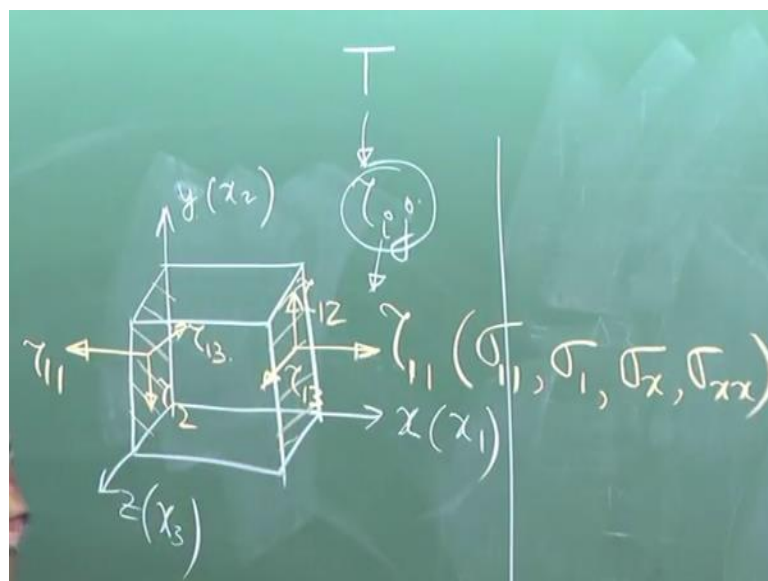 T
τij
y(x₂)
τ₁₂
τ₁₁
τ₁₃
τ₁₃
τ₁₁(σ₁₁, σ₁, σₓ, σₓₓ)
τ₁₂
x(x₁)
z(x₃)